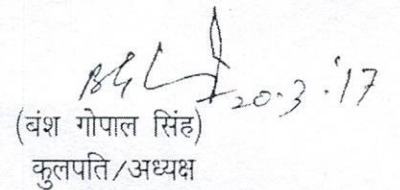 20.3.'17
(बंश गोपाल सिंह)
कुलपति/अध्यक्ष